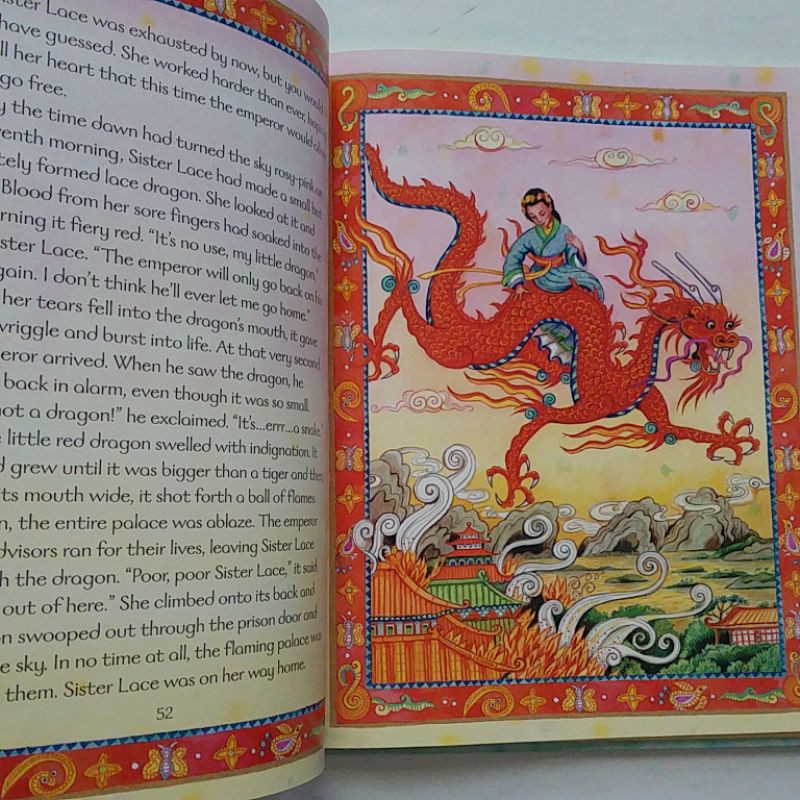 Lace was exhausted by now, but you would
have guessed. She worked harder than ever, hoping
her heart that this time the emperor would
go free.
the time dawn had turned the sky rosy-pink on
morning, Sister Lace had made a small but
formed lace dragon. She looked at it and
Blood from her sore fingers had soaked into the
it fiery red. “It’s no use, my little dragon,’
Lace. “The emperor will only go back on his
I don’t think he’ll ever let me go home.”
her tears fell into the dragon’s mouth, it gave
wriggle and burst into life. At that very second
arrived. When he saw the dragon, he
back in alarm, even though it was so small.
a dragon!” he exclaimed. “It’s...errr...a snake.’
little red dragon swelled with indignation. It
grew until it was bigger than a tiger and then,
its mouth wide, it shot forth a ball of flames.
the entire palace was ablaze. The emperor
ran for their lives, leaving Sister Lace
the dragon. “Poor, poor Sister Lace,” it said
out of here.” She climbed onto its back and
swooped out through the prison door and
sky. In no time at all, the flaming palace was
them. Sister Lace was on her way home.
52